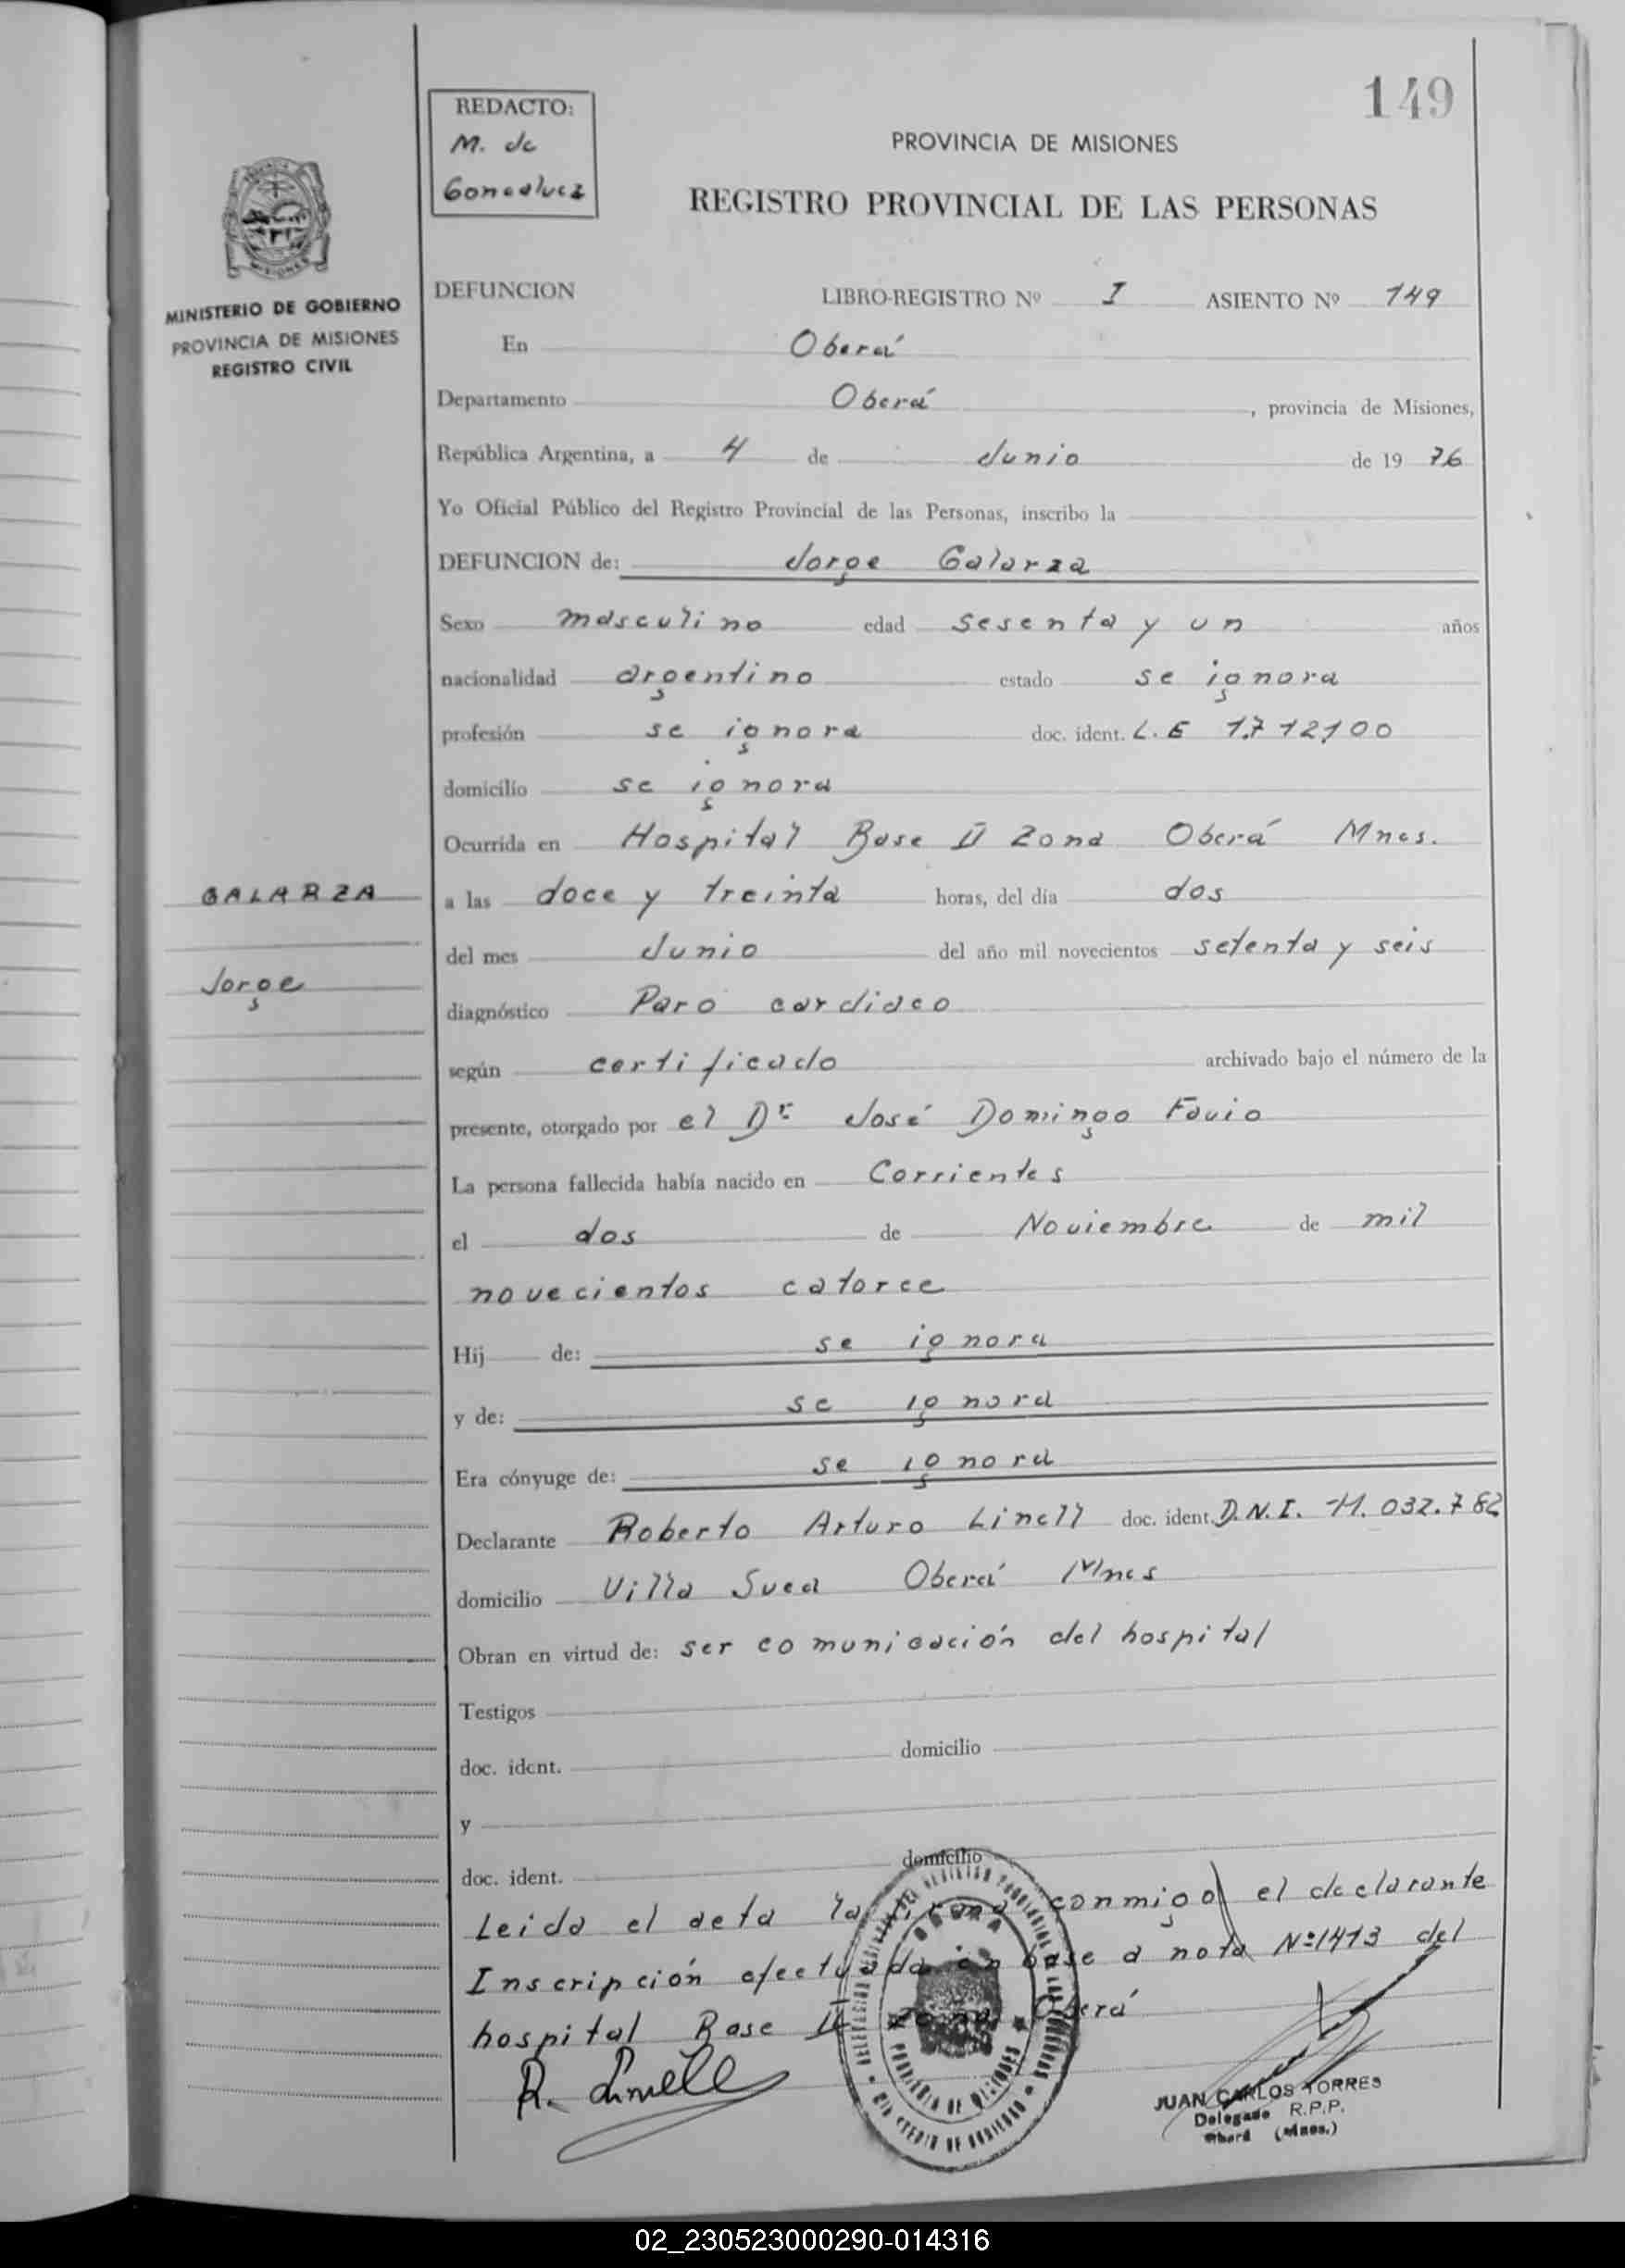 149
REDACTO:
M. de
Goncalvez
PROVINCIA DE MISIONES
REGISTRO PROVINCIAL DE LAS PERSONAS
MISIONES
MINISTERIO DE GOBIERNO
PROVINCIA DE MISIONES
REGISTRO CIVIL
DEFUNCION LIBRO-REGISTRO Nº I ASIENTO Nº 149
En Oberá
Departamento Oberá, provincia de Misiones,
República Argentina, a 4 de Junio de 19 76
Yo Oficial Público del Registro Provincial de las Personas, inscribo la
DEFUNCION de: Jorge Galarza
Sexo masculino edad sesenta y un años
nacionalidad argentino estado se ignora
profesión se ignora doc. ident. L.E 1.712.100
domicilio se ignora
Ocurrida en Hospital Base II Zona Oberá Mnes.
GALARZA
Jorge
a las doce y treinta horas, del día dos
del mes Junio del año mil novecientos setenta y seis
diagnóstico Paro cardiaco
según certificado archivado bajo el número de la
presente, otorgado por el Dr José Domingo Favio
La persona fallecida había nacido en Corrientes
el dos de Noviembre de mil
novecientos catorce
Hij de: se ignora
y de: se ignora
Era cónyuge de: se ignora
Declarante Roberto Arturo Linell doc. ident. D.N.I. 11.032.782
domicilio Villa Svea Oberá Mnes
Obran en virtud de: ser comunicación del hospital
Testigos
doc. ident. domicilio
y
doc. ident. domicilio
Leida el acta la firma conmigo el declarante
Inscripción efectuada en base a nota Nº 1413 del
hospital Base II Zona Oberá
R. Linell
OBERA
PROVINCIA DE MISIONES
JUAN CARLOS TORRES
Delegado R.P.P.
Oberá (Mnes.)
02_230523000290-014316